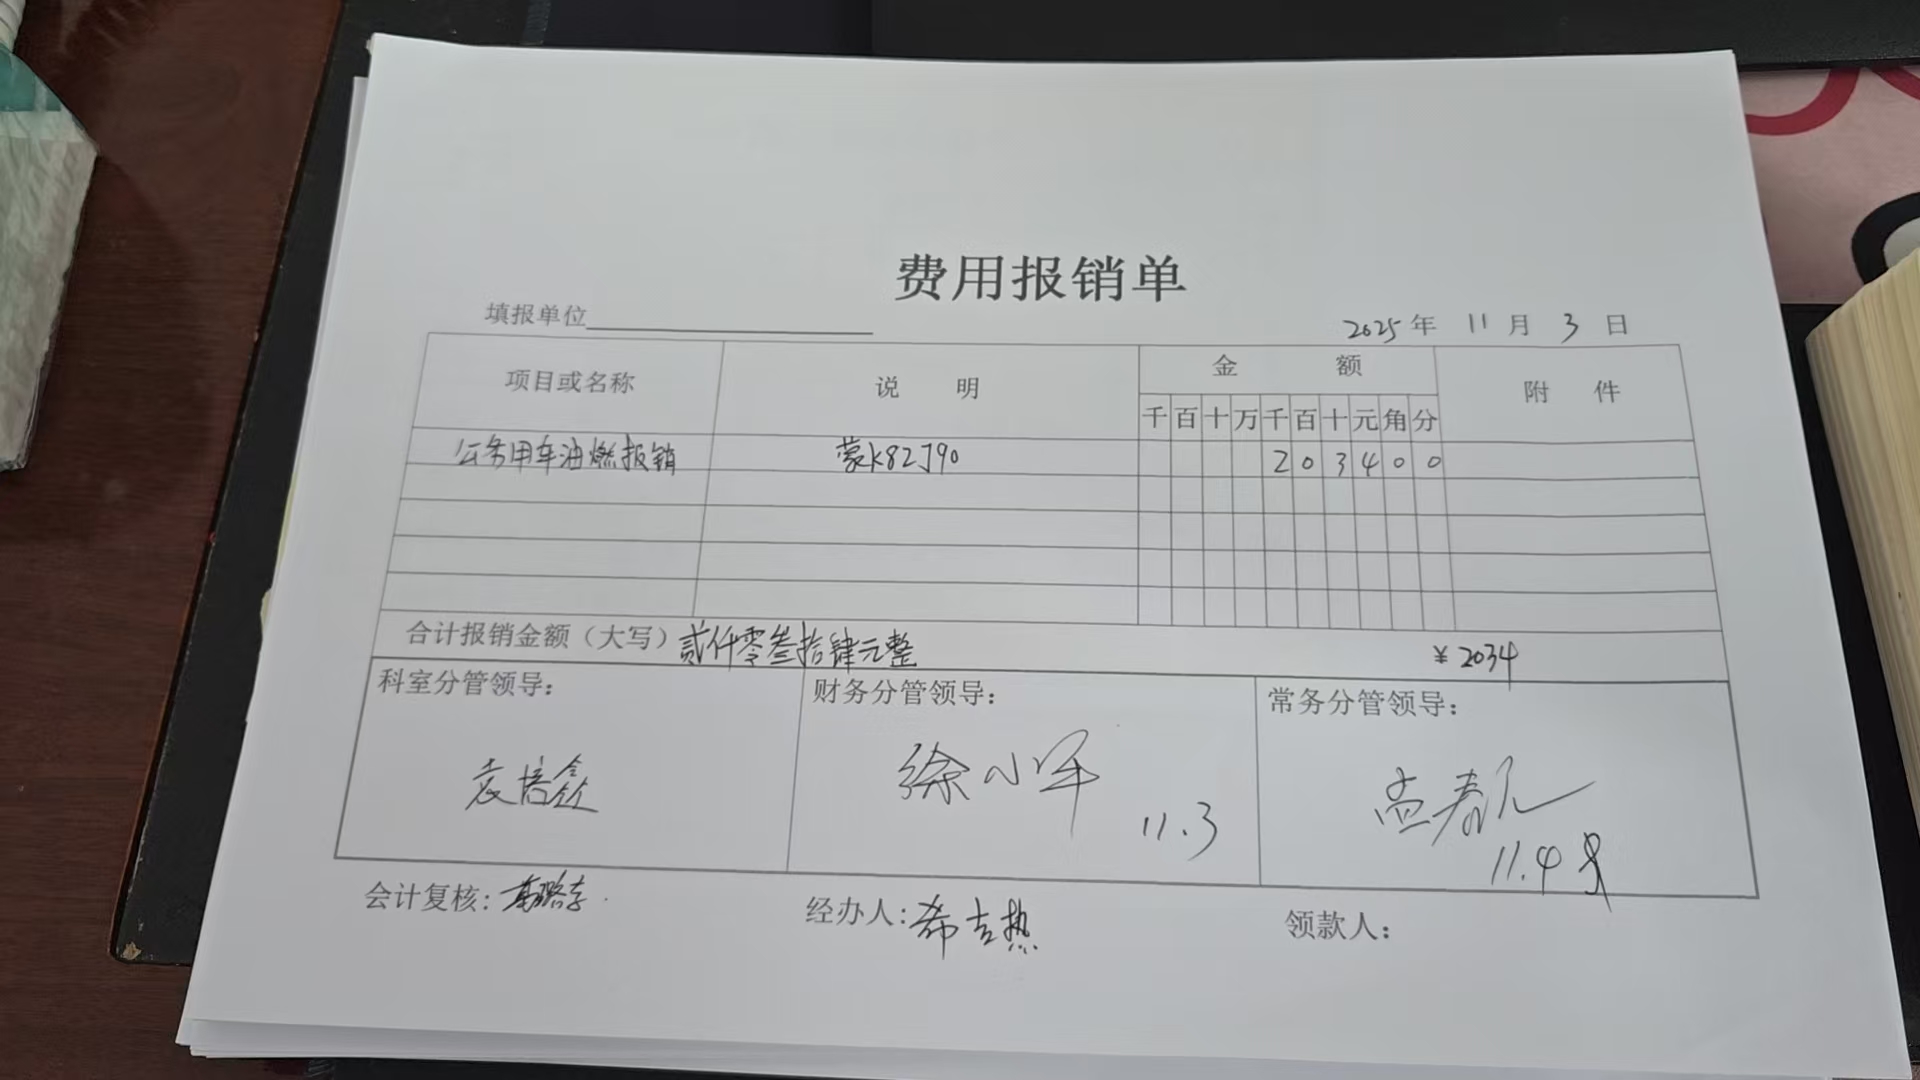 费用报销单
填报单位
2025年 11月 3日
项目或名称 说 明 金 额 附 件
千百十万千百十元角分
公务用车油燃报销 蒙K82J90 203400
合计报销金额（大写）贰仟零叁拾肆元整 ¥2034
科室分管领导： 财务分管领导： 常务分管领导：
袁培鑫 徐小军
11.3
11.4
会计复核： 经办人：希吉热 领款人：